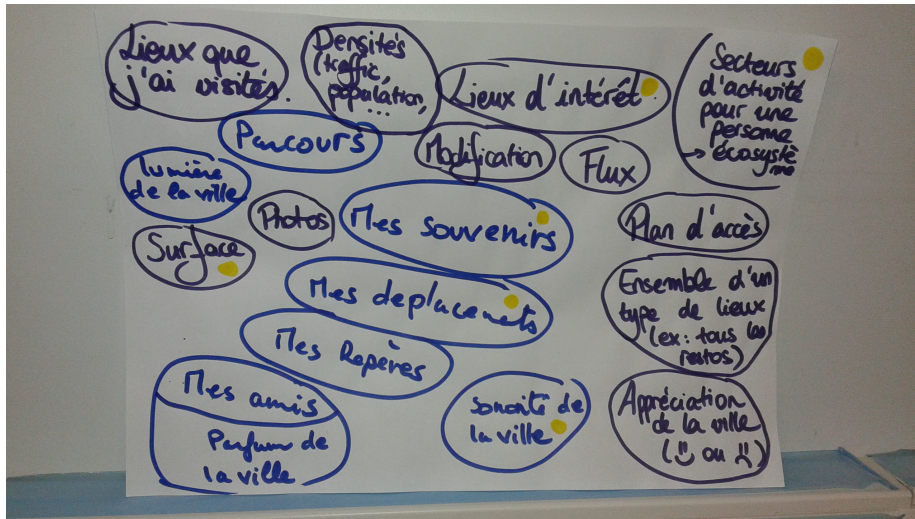 Lieux que
j'ai visités.
Densités
(traffic,
population,
...
Lieux d'intérêt
Secteurs
d'activité
pour une
personne
→ écosystè
me
Parcours
Modification
Flux
lumière
de la ville
Photos
Mes souvenirs
Plan d'accès
Surface
Mes deplacements
Ensemble d'un
type de lieux
(ex: tous les
restos)
Mes Repères
Mes amis
Parfum de
la ville
Sonorité de
la ville
Appréciation
de la ville
(☺ ou ☹)